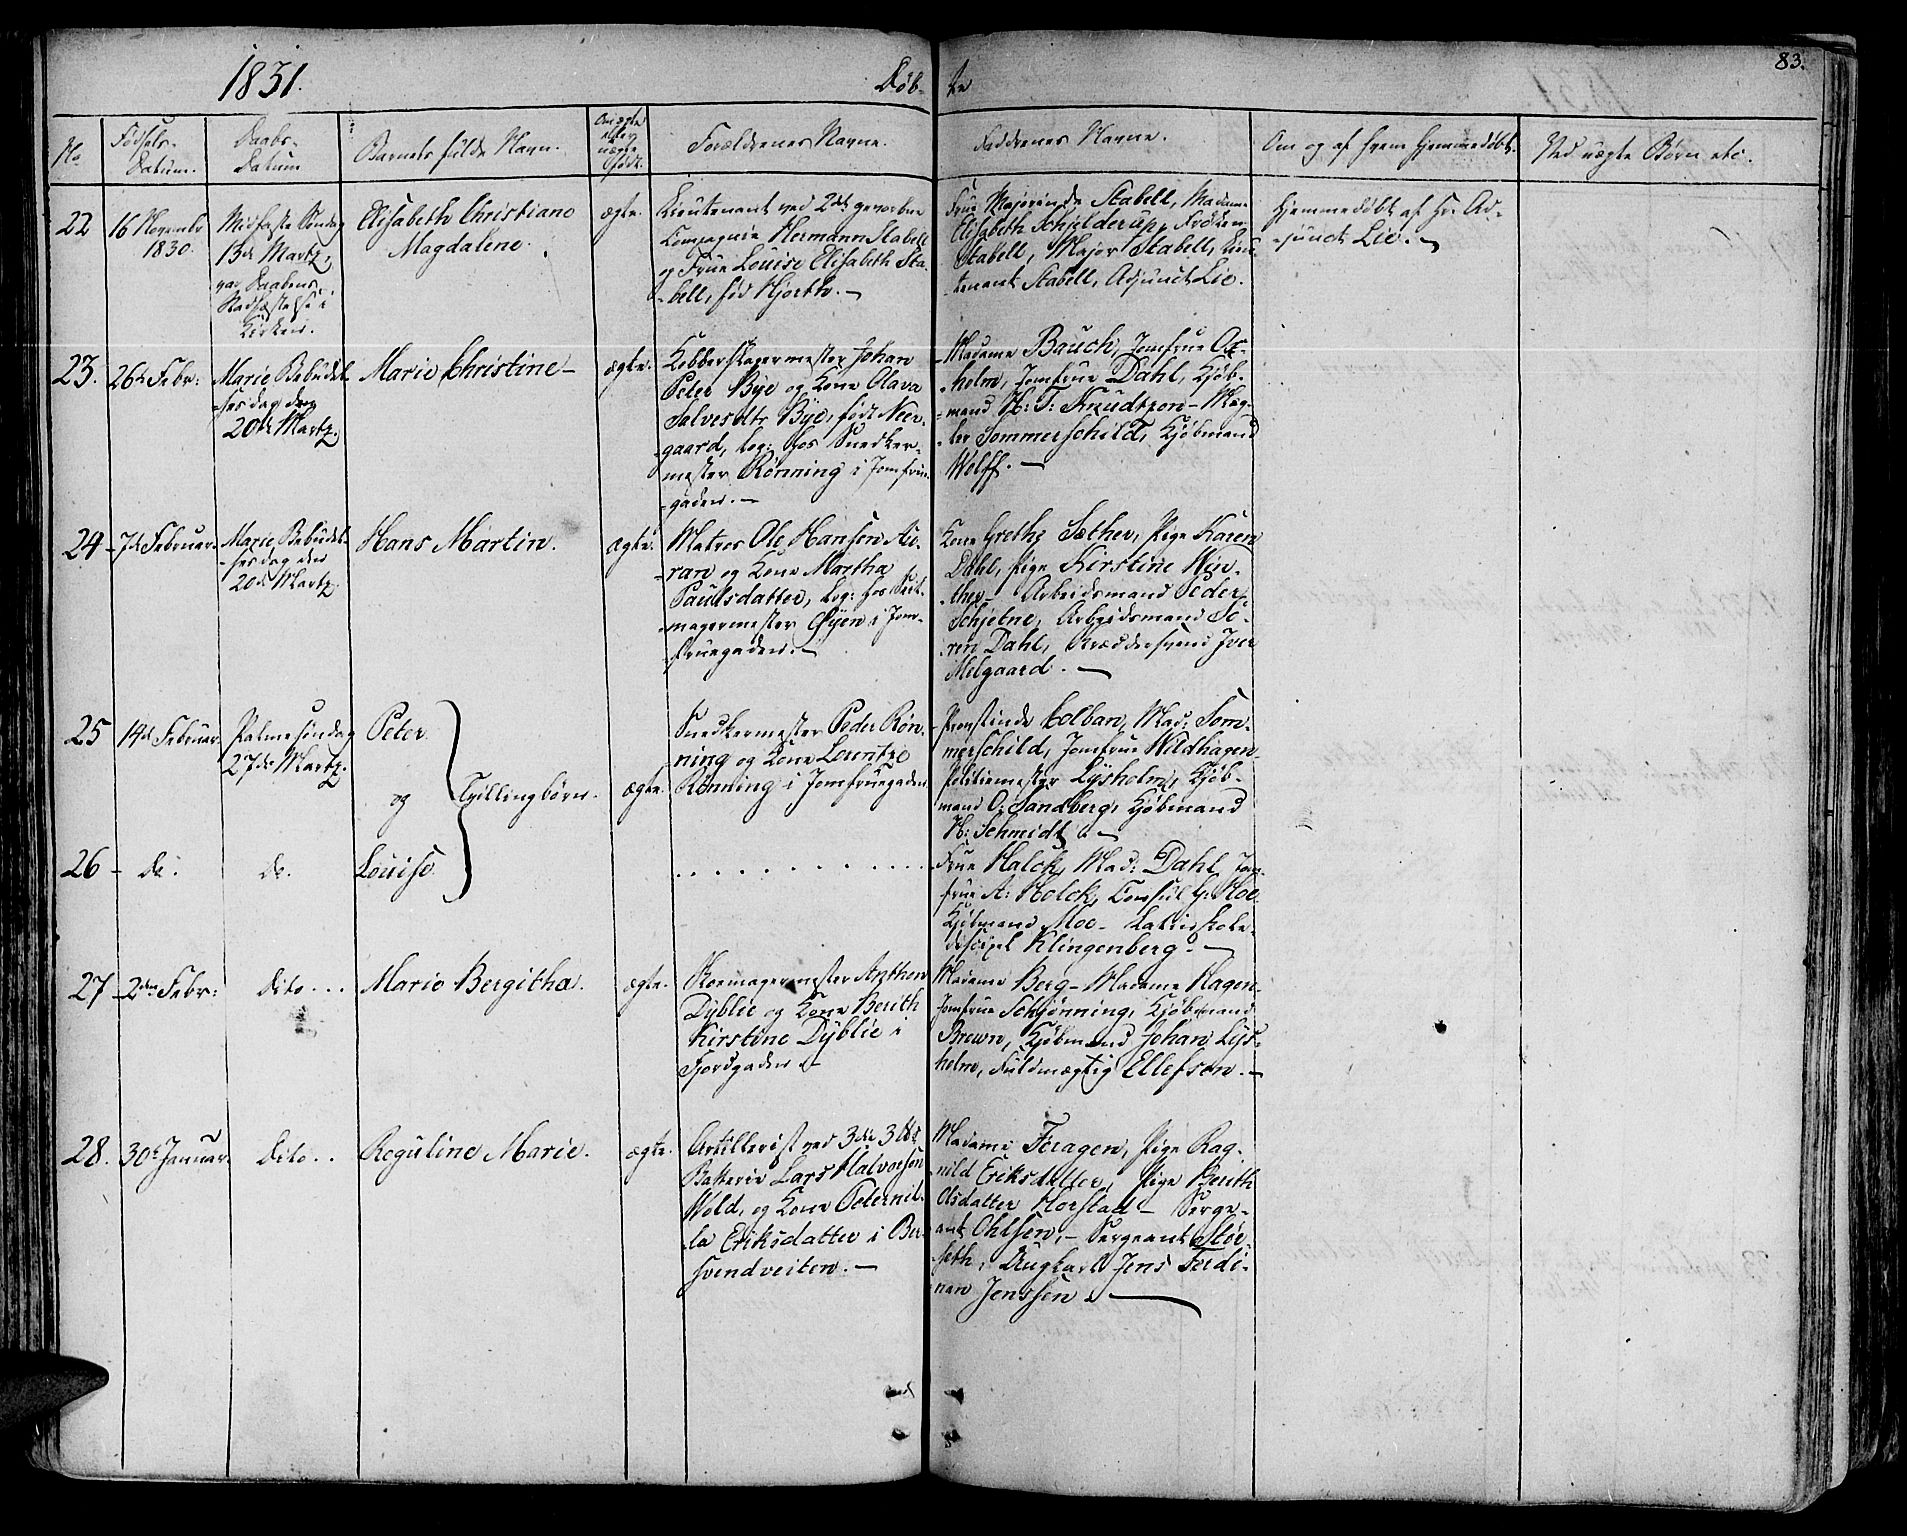 1831.
Døb-
te
83.
No
Fødsels-
Datum.
Daabs-
Datum
Barnets fulde Navn.
Om ægte
eller
uægte
født.
Forældrenes Navne.
Faddrenes Navne.
Om og af hvem hjemmedøbt.
Ved uægte Børn etc.
22
16 Novembr
1830.
Midfaste Søndag
13de Martz,
Daabens
Stadfæstelse i
Kirken.
Elisabeth Christiane
Magdalene.
ægte.
Lieutenant ved 2det gevorbne
Compagnie Hermann Stabell
og Frue Louise Elisabeth Sta-
-bell, fød Hjorth.-
Frue Majorinde Stabell, Madame
Elisabeth Schjelderup, Frøken
Stabell, Major Stabell, Lieu-
-tenant Stabell, Adjunct Lie.
Hjemmedøbt af Hr. Ad-
-junct Lie.-
23.
26de Febr:
Mariæ Bebudel-
-ses dag den
20de Martz.
Marie Christine-
ægte.
Kobberslagermester Johan
Peter Bye og Kone Olava
Salvesdtr Bye, født Neer-
-gaard, log: hos Snedker-
mester Rønning i Jomfrue-
-gaden.-
Madame Bauch, Jomfrue Ox-
-holm, Jomfrue Dahl, Kjøb-
-mand H: T: Knudtzon- Mæg-
-ler Sommerschild, Kjøbmand
Wolff.-
24
7de Februar
Mariæ Bebudel-
-ses dag den
20de Martz
Hans Martin.
ægte.
Matros Ole Hansen Au-
-ran og Kone Martha
Paulsdatter, log: hos
-magermester Øyen i Jom-
-fruegaden.-
Kone Grethe Sæther, Pige Karen
Dahl, Pige Kirstine Win-
-ther- Arbeidsmand Peder
Schjetne, Arbeidsmand Sö-
ren Dahl, Iver
Melgaard.-
25
14de Februar
Palmesöndag
27de Martz.
Peter
og
Tvillingbørn.
ægte.
Snedkermester Peder Røn-
ning og Kone Lorentze
Rønning i Jomfruegaden
Provstinde Colban, Mad: Som-
merschild, Jomfrue Wildhagen-
Politiemester Lysholm, Kjøb-
mand O: Sandberg, Kjøbmand
H: Schmidt.-
26
do.
do.
Louise
Frue Halck, Mad: Dahl, Jom-
frue A: Holck, Consul G: Hoe
Kjøbmand Moe- Latinskole-
discipel Klingenberg.-
27
2den Febr:
dito...
Marie Bergitha.
ægte.
Skomagermester Anthon
Dyblie og Kone Berith
Kirstine Dyblie i
Fjordgaden.-
Madame Berg- Madame Hagen-
Jomfrue Schjønning, Kjøbmand
Brown, Kjøbmand Johan Lys-
holm, Fuldmægtig Ellefsen.-
28.
30te Januar.
dito..
Roguline Marie.
ægte.
Artillerist ved 3die
Batterie Lars Halvorsen
Wold, og Kone Peternil-
-la Eriksdatter i Ber-
svendveiten.-
Madame Foragen, Pige Rag-
nild Eriksdatter, Pige Berith
Olsdatter Horstad- Serge-
ant Ohlsen,- Sergeant Stør-
seth, Ungkarl Jens Ferdi-
nan Jenssen.-